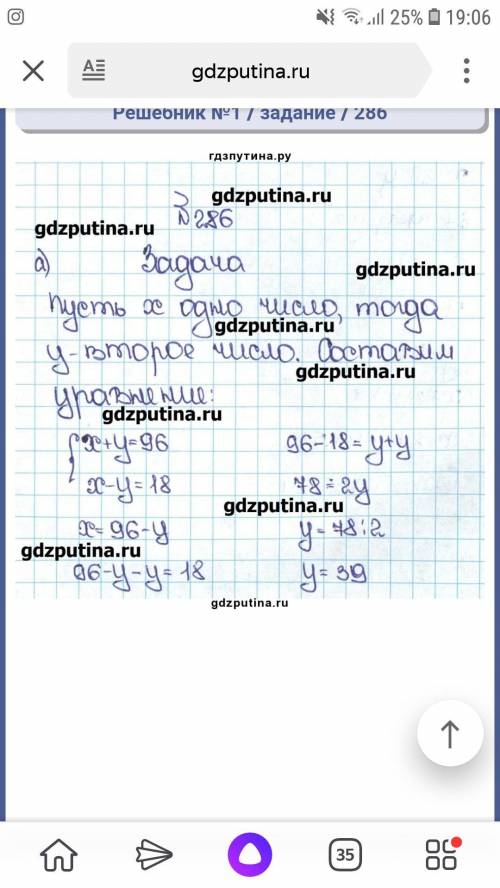 25% 19:06
gdzputina.ru
Решебник №1 / задание / 286
гдзпутина.ру
gdzputina.ru
№286
gdzputina.ru
а) Задача
gdzputina.ru
Пусть х одно число, тогда
gdzputina.ru
у-второе число. Составим
gdzputina.ru
уравнение:
gdzputina.ru
х+у=96
96-18=у+у
х-у=18
78=2у
gdzputina.ru
х=96-у
у=78:2
gdzputina.ru
96-у-у=18
у=39
gdzputina.ru
35